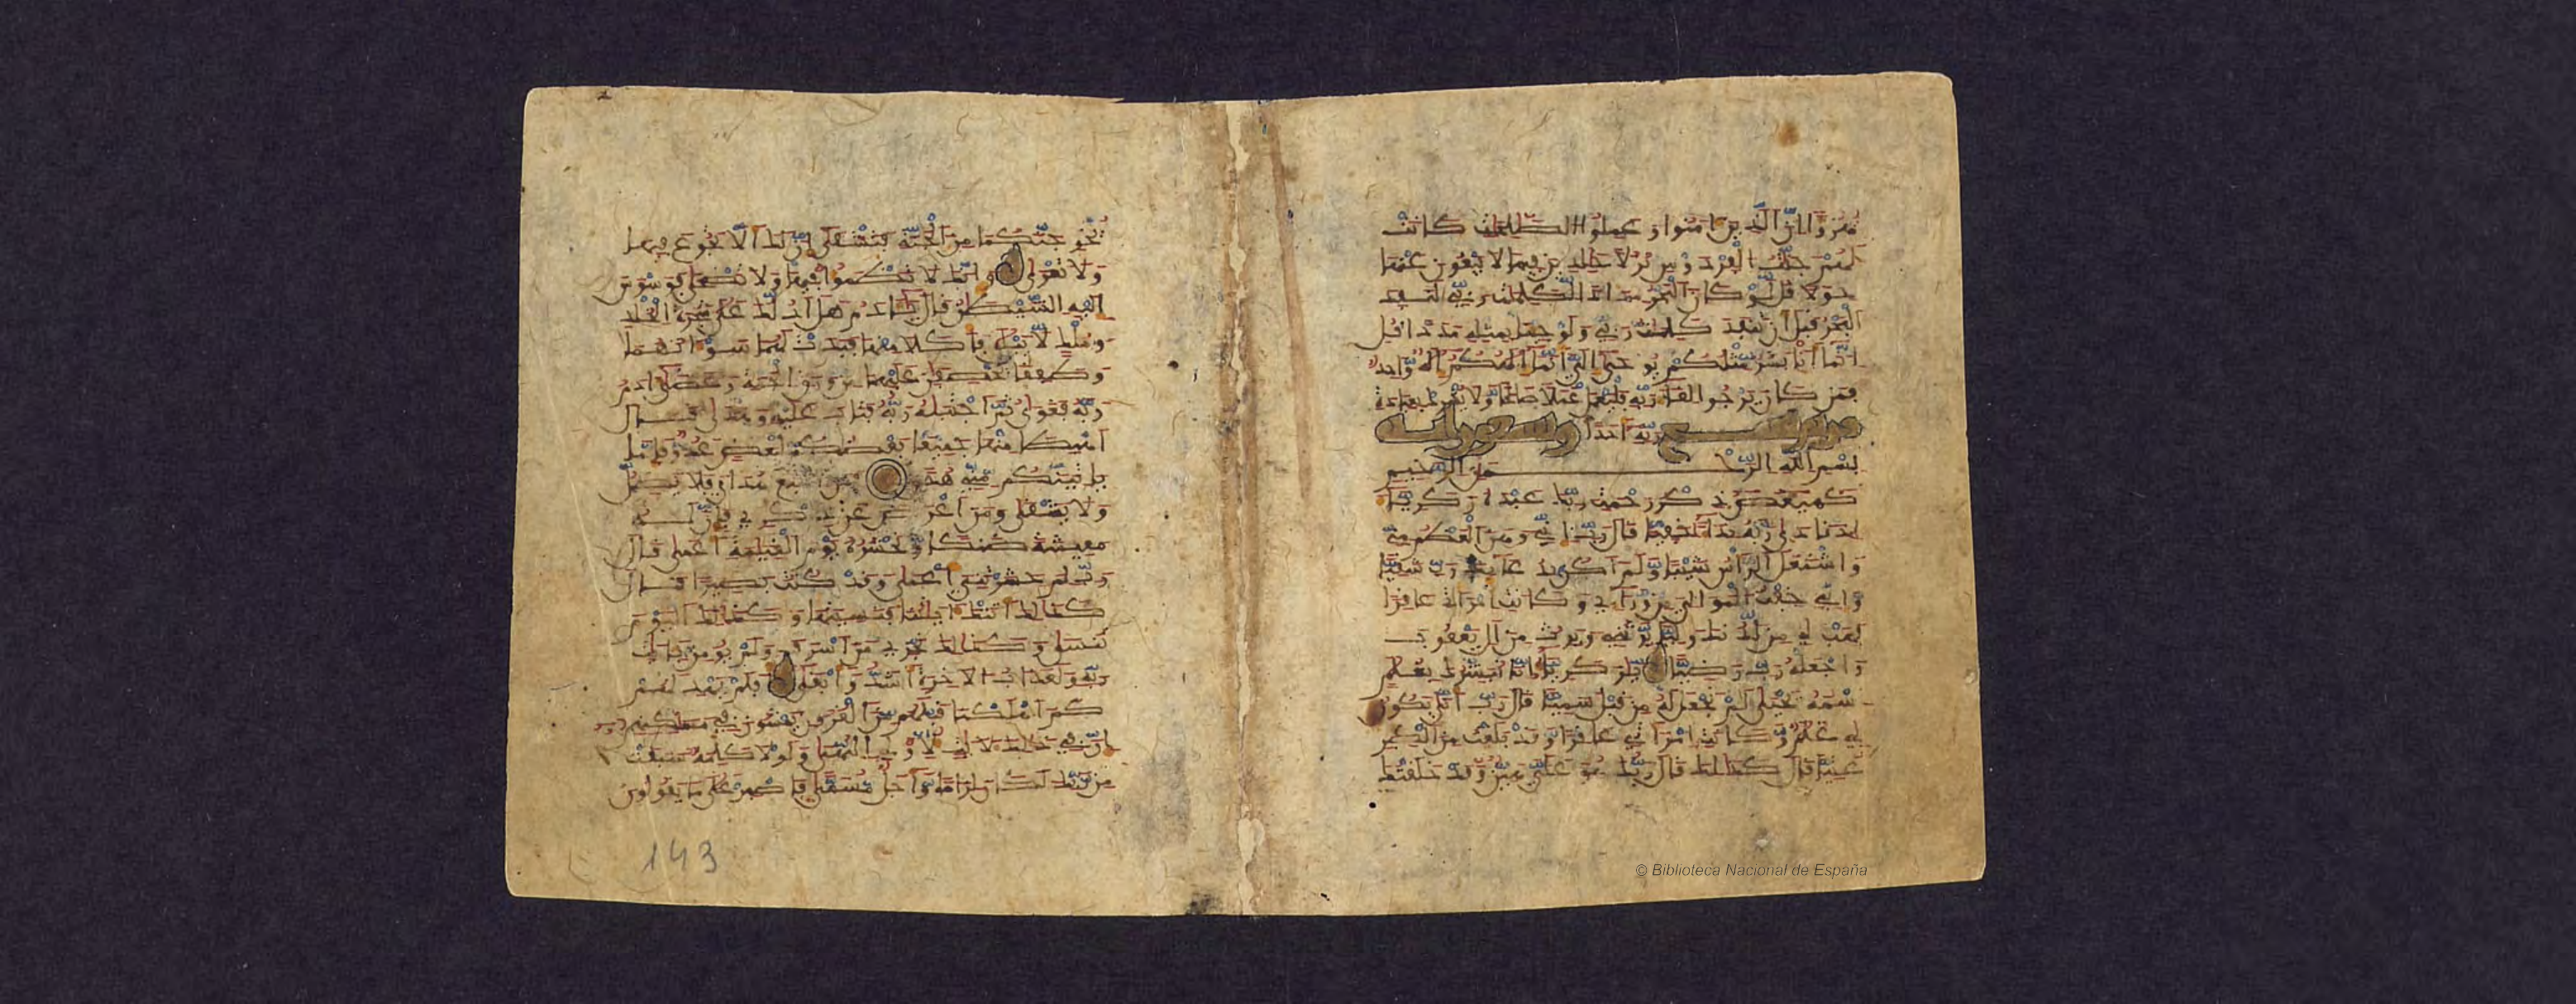 هزؤا ان الذين امنوا وعملوا الصلحت كانت
لهم جنت الفردوس نزلا خلدين فيها لا يبغون عنها
حولا قل لو كان البحر مدادا لكلمت ربي لنفد
البحر قبل ان تنفد كلمت ربي ولو جئنا بمثله مددا قل
انما انا بشر مثلكم يوحى الي انما الهكم اله وحد
فمن كان يرجوا لقاء ربه فليعمل عملا صلحا ولا يشرك بعبادة
ربه احدا
بسم الله الرحمن الرحيم
كهيعص ذكر رحمت ربك عبده زكريا
اذ نادى ربه نداء خفيا قال رب اني وهن العظم مني
واشتعل الراس شيبا ولم اكن بدعائك رب شقيا
واني خفت الموالي من وراءي وكانت امراتي عاقرا
فهب لي من لدنك وليا يرثني ويرث من ال يعقوب
واجعله رب رضيا يزكريا انا نبشرك بغلم
اسمه يحيى لم نجعل له من قبل سميا قال رب انى يكون
لي غلم وكانت امراتي عاقرا وقد بلغت من الكبر
عتيا قال كذلك قال ربك هو علي هين وقد خلقتك
يخرجنكما من الجنة فتشقى ان لك الا تجوع فيها
ولا تعرى وانك لا تظمؤا فيها ولا تضحى فوسوس
اليه الشيطن قال يادم هل ادلك على شجرة الخلد
وملك لا يبلى فاكلا منها فبدت لهما سوءتهما
وطفقا يخصفن عليهما من ورق الجنة وعصى ادم
ربه فغوى ثم اجتبه ربه فتاب عليه وهدى قال
اهبطا منها جميعا بعضكم لبعض عدو فاما
ياتينكم مني هدى فمن اتبع هداي فلا يضل
ولا يشقى ومن اعرض عن ذكري فان له
معيشة ضنكا ونحشره يوم القيمة اعمى قال
رب لم حشرتني اعمى وقد كنت بصيرا قال
كذلك اتتك ايتنا فنسيتها وكذلك اليوم
تنسى وكذلك نجزي من اسرف ولم يومن بايت
ربه ولعذاب الاخرة اشد وابقى افلم يهد لهم
كم اهلكنا قبلهم من القرون يمشون في مسكنهم
ان في ذلك لايت لاولي النهى ولولا كلمة سبقت
من ربك لكان لزاما واجل مسمى فاصبر على ما يقولون
143
© Biblioteca Nacional de España